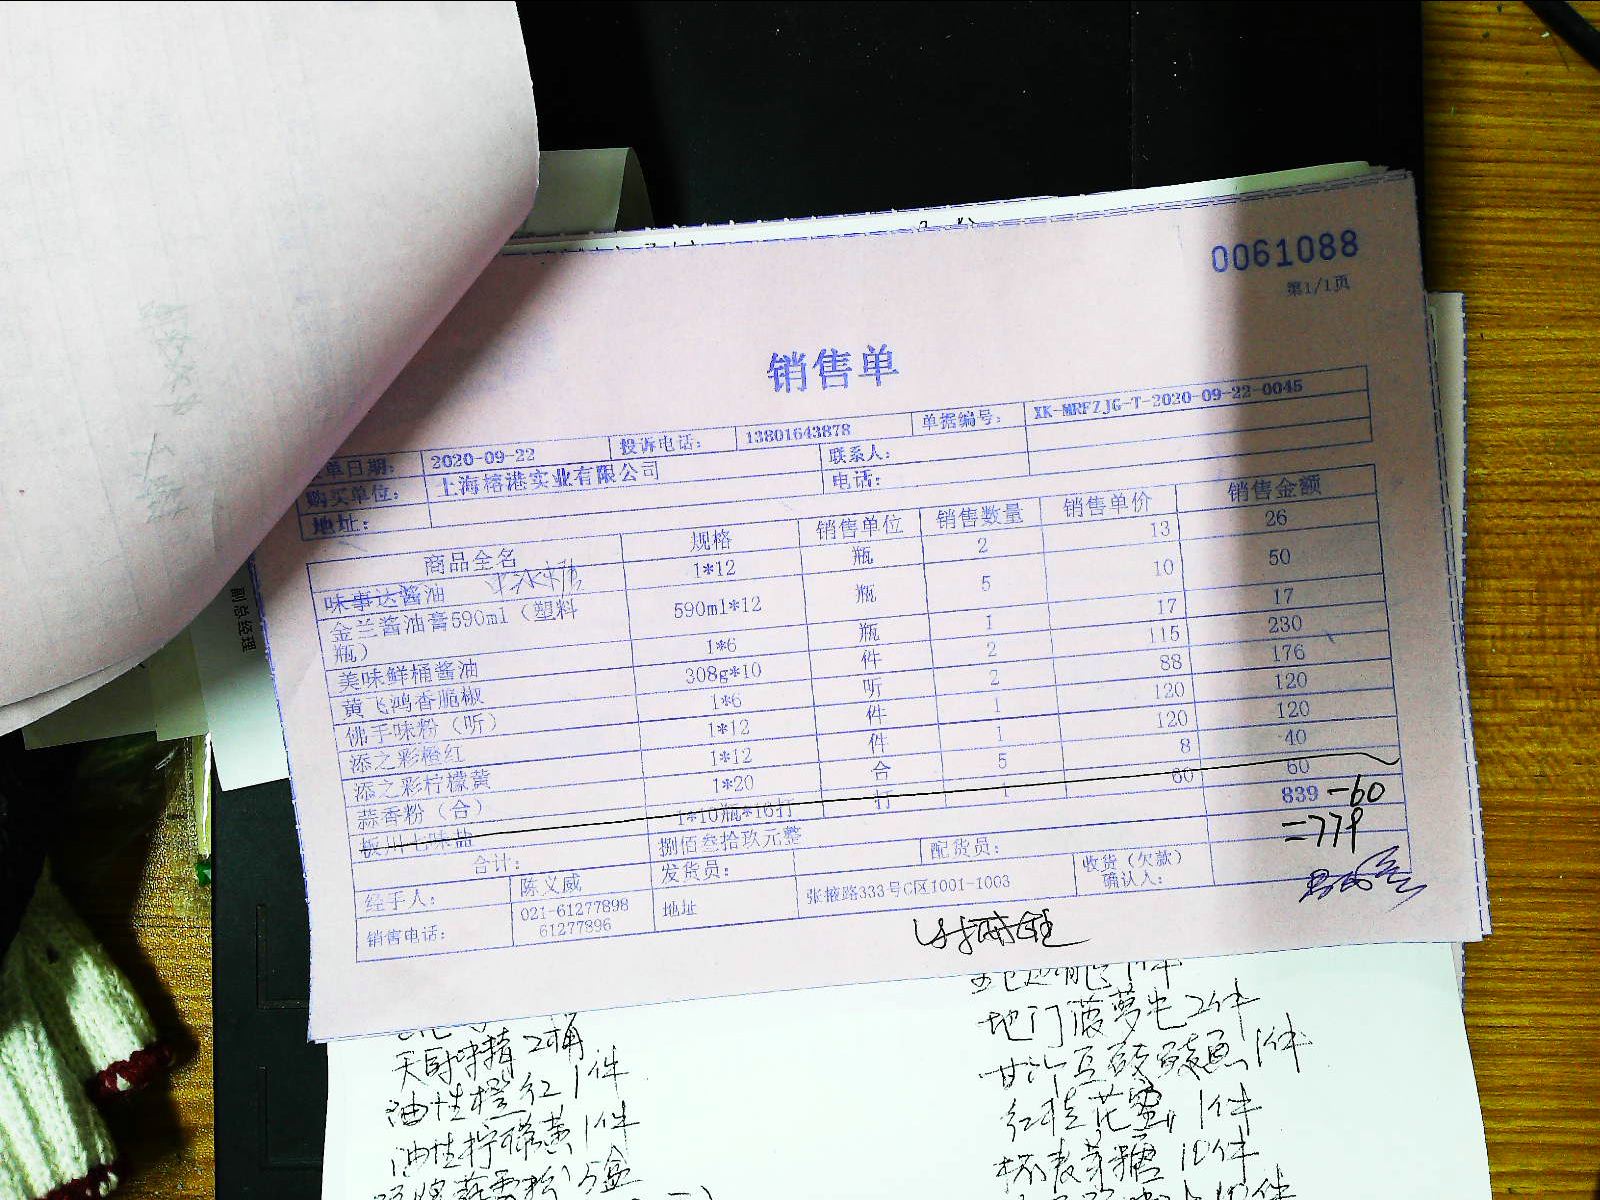 0061088
第1/1页
销售单
单日期: 2020-09-22 投诉电话: 13801643878 单据编号: XK-MRFZJG-T-2020-09-22-0045
购买单位: 上海榕港实业有限公司 联系人:
地址: 电话:
商品全名 规格 销售单位 销售数量 销售单价 销售金额
味事达酱油 1*12 瓶 2 13 26
金兰酱油膏590ml（塑料瓶） 590ml*12 瓶 5 10 50
美味鲜桶酱油 1*6 瓶 1 17 17
黄飞鸿香脆椒 308g*10 件 2 115 230
佛手味粉（听） 1*6 听 2 88 176
添之彩橙红 1*12 件 1 120 120
添之彩柠檬黄 1*12 件 1 120 120
蒜香粉（合） 1*20 合 5 8 40
板川七味盐 1*10瓶*16打 打 1 60 60
合计: 捌佰叁拾玖元整 839 -60
=779
经手人: 陈义威 发货员: 配货员: 收货（欠款）确认人:
销售电话: 021-61277898 61277896 地址 张掖路333号C区1001-1003
副总经理
天厨味精 2桶
油性橙红 1件
油性柠檬黄 1件
地门菠萝 2件
甘竹豆豉鲮鱼 1件
红桂花蜜 1件
10件